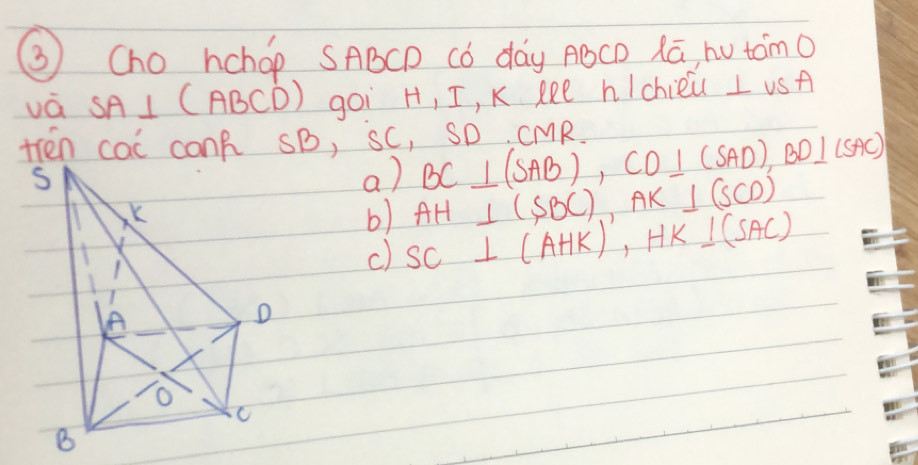 ③ Cho hchóp SABCD có đáy ABCD là hv tâm O
và SA ⊥ (ABCD) gọi H, I, K lll h/chiếu ⊥ vs A
trên các cạnh SB, SC, SD. CMR.
a) BC ⊥ (SAB), CD ⊥ (SAD), BD ⊥ (SAC)
b) AH ⊥ (SBC), AK ⊥ (SCD)
c) SC ⊥ (AHK), HK ⊥ (SAC)
S
K
A
D
O
C
B